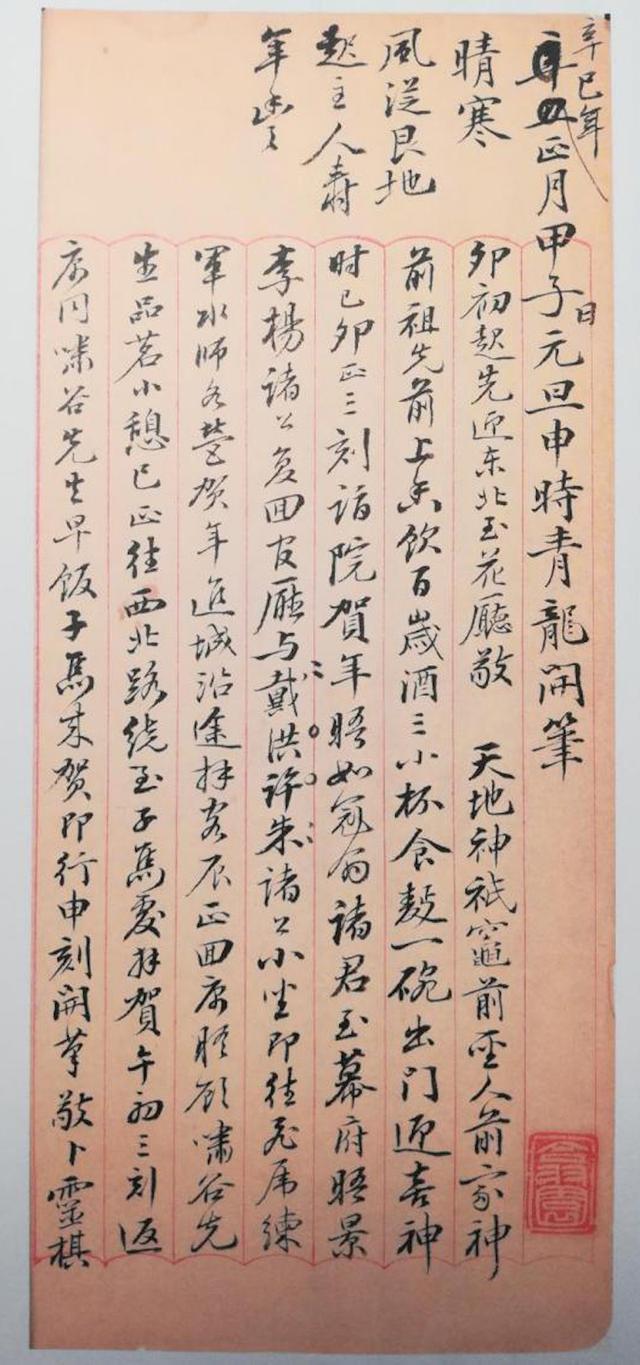 辛巳年
正月甲子日元旦申時青龍開筆
晴寒
風從艮地
起主人壽
年豐
卯初起先迎东北至花廳敬 天地神祇竈前聖人前家神
前祖先前上香飲百歲酒三小杯食麪一碗出門迎喜神
时已卯正三刻詣院賀年晤如冠翁諸君至幕府晤景
李楊諸公复回官廳与戴洪許朱諸公小坐即往飛虎練
軍水師各營贺年進城沿途拜客辰正回寓晤顧嘯谷先
生品茗小憩巳正往西北路绕至子馬處拜賀午初三刻返
寓同嘯谷先生早饭子馬来贺即行申刻開筆敬卜靈棋